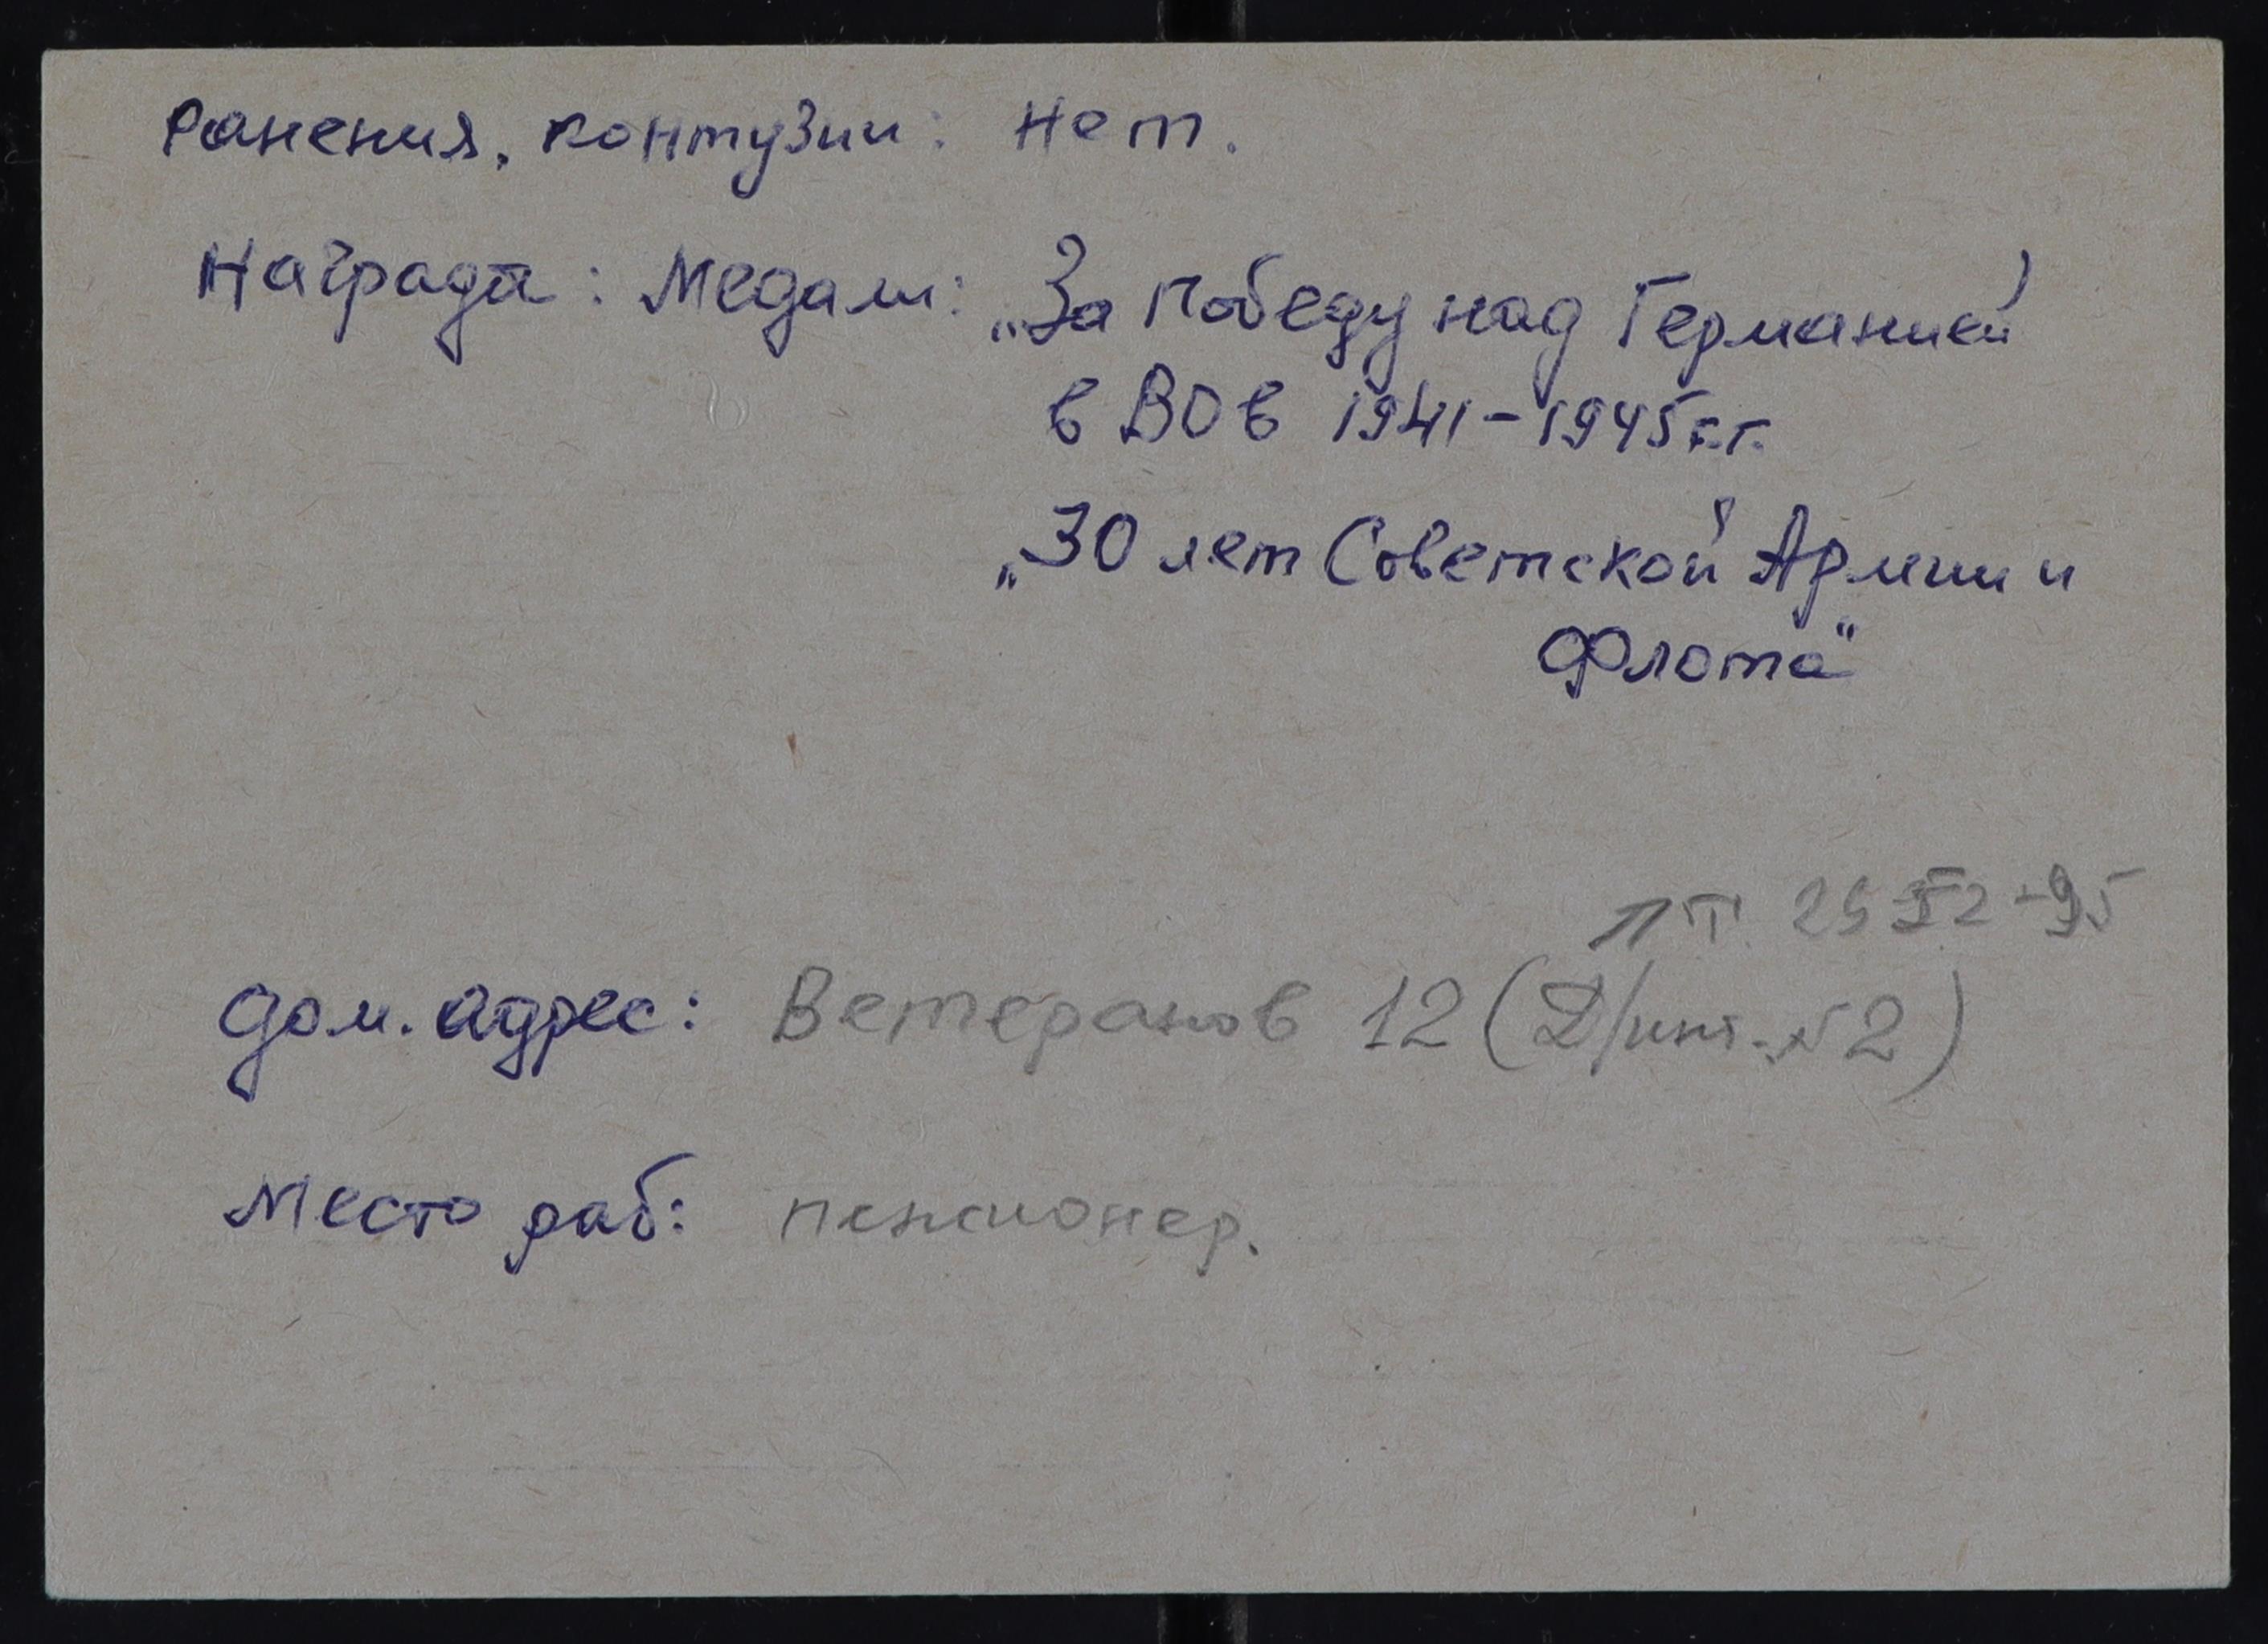 Ранения, контузии: нет.
Награда: Медали: „За победу над Германией
в ВОв 1941-1945 г.г.
„30 лет Советской Армии и
Флота"
Т.
дом. адрес: Ветеранов 12 (Д/инт. №2)
Место раб: пенсионер.